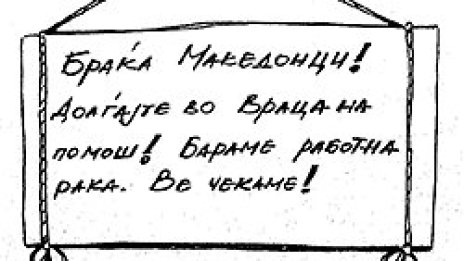 Браќа Македонци!
Доаѓајте во Враца на
помош! Бараме работна
рака. Ве чекаме!